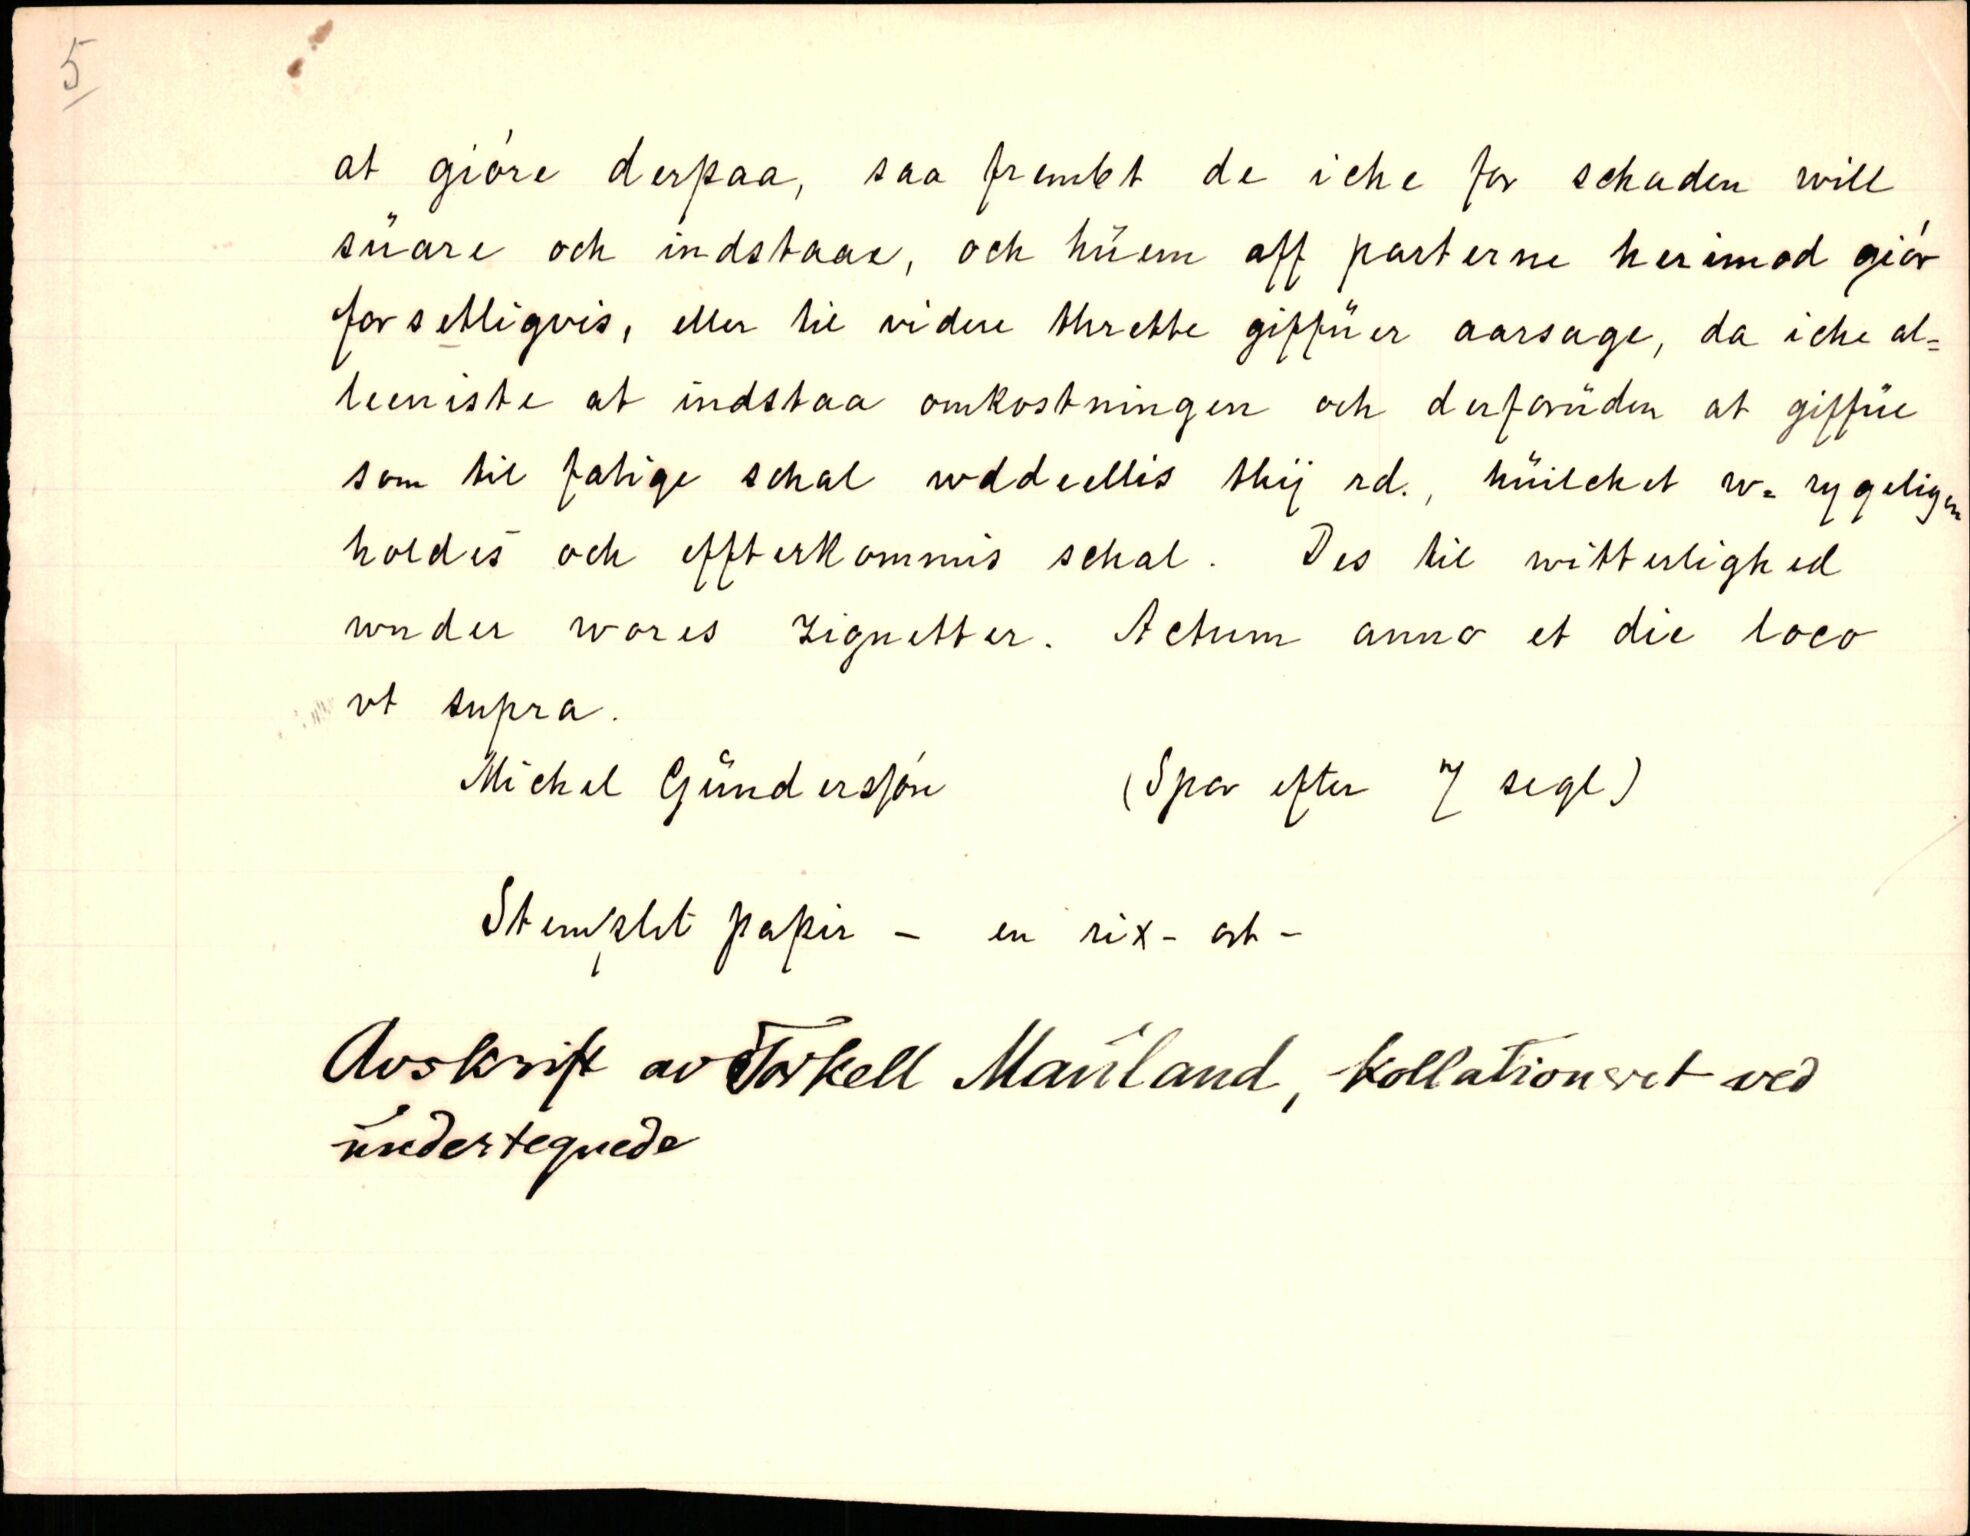 5
at gióre derpaa, saa frembt de iche for schaden will
süare och indstaae, och hüem aff parterne herimod giór
forsetligvis, eller til videre thrette giffüer aarsage, da iche al=
leeniste at indstaa omkostningen och derforüden at giffüe
som til fatige schal wddeellis thij rd., hüilchet w= rygeligen
holdes och effterkommis schal. Des til witterlighed
wnder wores zignetter. Actum anno et die loco
vt supra.
Michel Gündersøn (Spor efter 7 segl)
Stemplet papir - en rix- ort -
Avskrift av Torkell Mauland, kollationeret ved
undertegnede